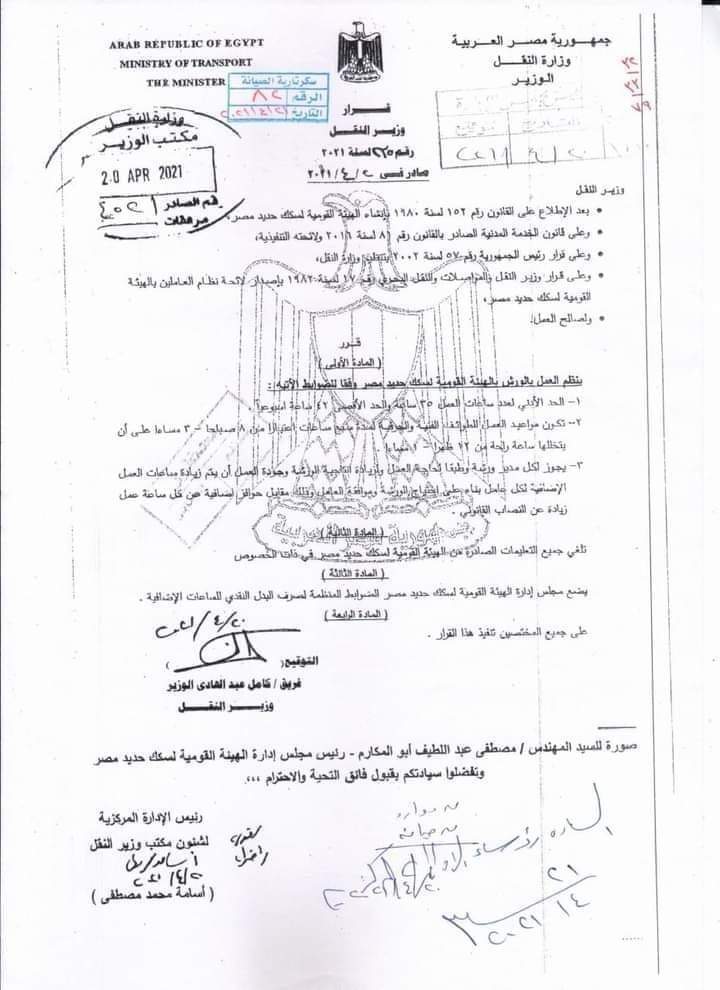 ARAB REPUBLIC OF EGYPT
MINISTRY OF TRANSPORT
THE MINISTER
جمهورية مصر العربية
وزارة النقل
الوزير
سكرتارية الصيانة
الرقم ٨٢
التاريخ
وزارة النقل
مكتب الوزير
20 APR 2021
رقم الصادر
مرفقات
قرار
وزير النقل
رقم ٢٢٥ لسنة ٢٠٢١
صادر فى ٢٠/٤/٢٠٢١
وزير النقل
• بعد الإطلاع على القانون رقم ١٥٢ لسنة ١٩٨٠ بإنشاء الهيئة القومية لسكك حديد مصر،
• وعلى قانون الخدمة المدنية الصادر بالقانون رقم ٨١ لسنة ٢٠١٦ ولائحته التنفيذية،
• وعلى قرار رئيس الجمهورية رقم ٥٧ لسنة ٢٠٠٢ بتنظيم وزارة النقل،
• وعلى قرار وزير النقل والمواصلات والنقل البحري رقم ١٧ لسنة ١٩٨٢ بإصدار لائحة نظام العاملين بالهيئة
القومية لسكك حديد مصر،
• ولصالح العمل.
قرر
( المادة الأولى )
ينظم العمل بالورش بالهيئة القومية لسكك حديد مصر وفقا للضوابط الآتية :
١- الحد الأدني لعدد ساعات العمل ٣٥ ساعة والحد الأقصى ٤٢ ساعة اسبوعياً.
٢- تكون مواعيد العمل للوظائف الفنية والحرفية لمدة سبع ساعات اعتباراً من ٨ صباحا - ٣ مساءا على أن
يتخللها ساعة راحة من ١٢ ظهرا - ١ مساءا
٣- يجوز لكل مدير ورشة وطبقا لحاجة العمل ولزيادة انتاجية الورشة وجودة العمل أن يتم زيادة ساعات العمل
الإضافية لكل عامل بناء على احتياج الورشة وموافقة العامل وذلك مقابل حوافز إضافية عن كل ساعة عمل
زيادة عن النصاب القانوني .
( المادة الثانية )
تلغي جميع التعليمات الصادرة من الهيئة القومية لسكك حديد مصر في ذات الخصوص
( المادة الثالثة )
يضع مجلس إدارة الهيئة القومية لسكك حديد مصر الضوابط المنظمة لصرف البدل النقدي للساعات الإضافية .
( المادة الرابعة )
على جميع المختصين تنفيذ هذا القرار .
٢٠/٤/٢٠٢١
التوقيع( )
فريق / كامل عبد الهادى الوزير
وزير النقل
جمهورية مصر العربية
صورة للسيد المهندس / مصطفى عبد اللطيف أبو المكارم - رئيس مجلس إدارة الهيئة القومية لسكك حديد مصر
وتفضلوا سيادتكم بقبول فائق التحية والاحترام ،،،
رئيس الإدارة المركزية
لشئون مكتب وزير النقل
( أسامة محمد مصطفى )
السادة رؤساء
......